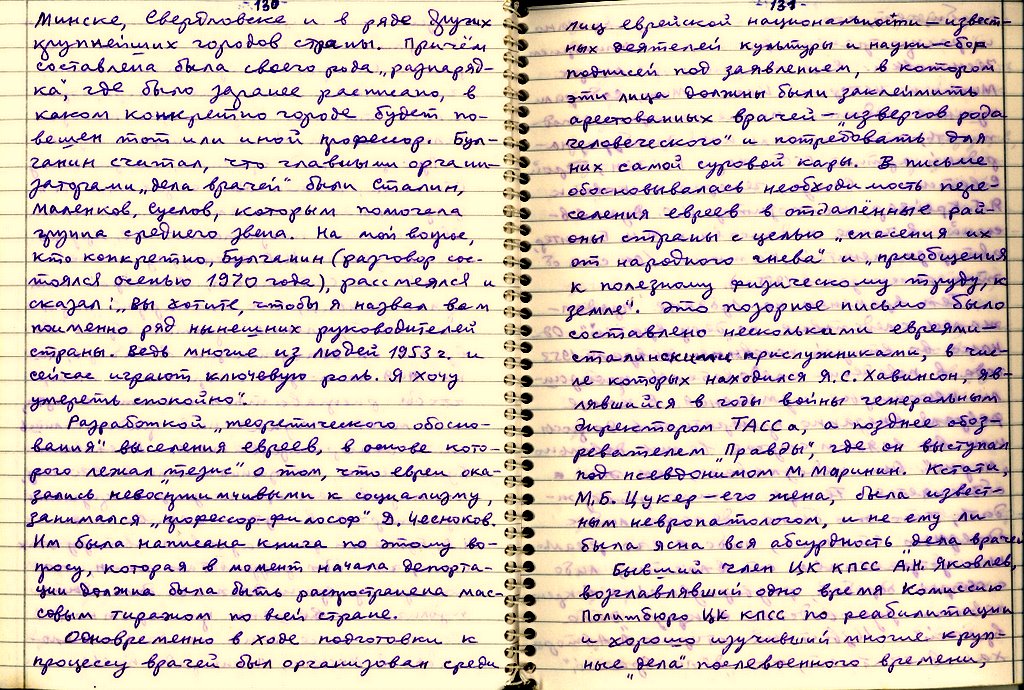 -130-
Минске, Свердловске и в ряде других
крупнейших городов страны. Причём
составлена была своего рода „разнаряд-
ка", где было заранее расписано, в
каком конкретно городе будет по-
вешен тот или иной профессор. Бул-
ганин считал, что главными органи-
заторами „дела врачей" были Сталин,
Маленков, Суслов, которым помогала
группа среднего звена. На мой вопрос,
кто конкретно, Булганин (разговор сос-
тоялся осенью 1970 года), рассмеялся и
сказал: „Вы хотите, чтобы я назвал вам
поименно ряд нынешних руководителей
страны. Ведь многие из людей 1953 г. и
сейчас играют ключевую роль. Я хочу
умереть спокойно".
Разработкой „теоретического обосно-
вания" выселения евреев, в основе кото-
рого лежал „тезис" о том, что евреи ока-
зались невосприимчивыми к социализму,
занимался „профессор-философ" Д. Чесноков.
Им была написана книга по этому во-
просу, которая в момент начала депорта-
ции должна была быть распространена мас-
совым тиражом по всей стране.
Одновременно в ходе подготовки к
процессу врачей был организован среди
-131-
лиц еврейской национальности — извест-
ных деятелей культуры и науки — сбор
подписей под заявлением, в котором
эти лица должны были заклеймить
арестованных врачей — „извергов рода
человеческого" и потребовать для
них самой суровой кары. В письме
обосновывалась необходимость пере-
селения евреев в отдалённые рай-
оны страны с целью „спасения их
от народного гнева" и „приобщения
к полезному физическому труду, к
земле". Это позорное письмо было
составлено несколькими евреями —
сталинскими прислужниками, в чис-
ле которых находился Я.С. Хавинсон, яв-
лявшийся в годы войны генеральным
директором ТАССа, а позднее обоз-
ревателем „Правды", где он выступал
под псевдонимом М. Маринин. Кстати,
М.Б. Цукер — его жена, была извест-
ным невропатологом, и не ему ли
была ясна вся абсурдность „дела врачей
Бывший член ЦК КПСС А.Н. Яковлев,
возглавлявший одно время Комиссию
Политбюро ЦК КПСС по реабилитации
и хорошо изучивший многие круп-
ные „дела" послевоенного времени,